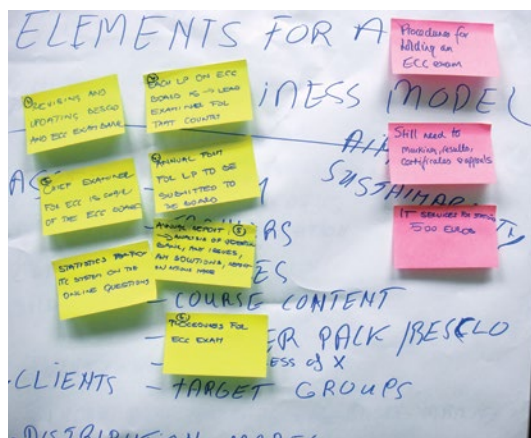 ELEMENTS FOR A
INESS MODEL
SUSTAINABILITY
COURSE CONTENT
ER PACK/
ESS of X
CLIENTS - TARGET GROUPS
REVISING AND
UPDATING DESIGN
AND ECC EXAM BANK
EACH LP ON ECC
BOARD IS → LEAD
EXAMINER FOR
THAT COUNTRY
CHIEF EXAMINER
FOR ECC IS CHAIR
OF THE ECC BOARD
ANNUAL
FOR LP TO BE
SUBMITTED TO
THE BOARD
STATISTICS
ITC SYSTEM ON THE
ONLINE QUESTIONS
ANNUAL REPORT
→ ANALYSIS OF QUESTION
BANK, ANY ISSUES,
ANY SOLUTIONS, REPORT
PROCEDURES FOR
ECC EXAM
Procedures for
holding an
ECC exam
Still need to
marking, results,
certificates & appeals
IT SERVICES FOR
500 EUROS